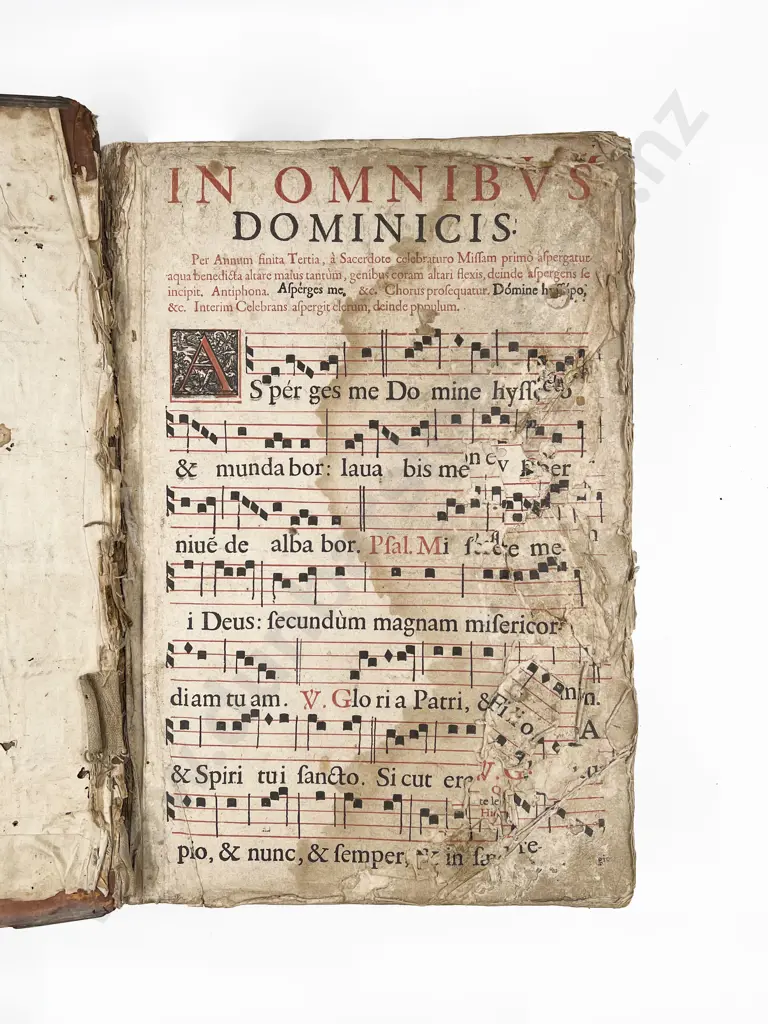 IN OMNIBVS
DOMINICIS:
Per Annum finita Tertia, à Sacerdote celebraturo Miſſam primò aſpergatur
aqua benedicta altare maius tantùm, genibus coram altari flexis, deinde aſpergens ſe
incipit. Antiphona. Aſpérges me, &c. Chorus proſequatur. Dómine hyſſópo,
&c. Interim Celebrans aſpergit clerum, deinde populum.
A
S pér ges me Do mine hyſſ
& munda bor: laua bis me
niuē de alba bor. Pſal. Mi me
i Deus: ſecundùm magnam miſericor-
diam tu am. V. Glo ri a Patri, &
& Spiri tui ſancto. Si cut
pio, & nunc, & ſemper, in
.nz